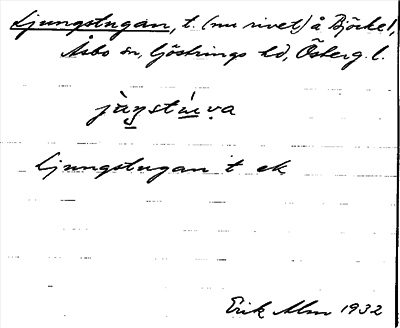 Ljungstugan, t. (nu rivet) å Björke 1,
Åsbo sn, Göstrings hd, Österg. l.
jàŋstúːga
Ljungstugan t ek
Erik Alm 1932